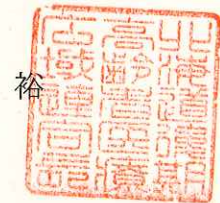 北海道後期
高齢者医療
広域連合
裕